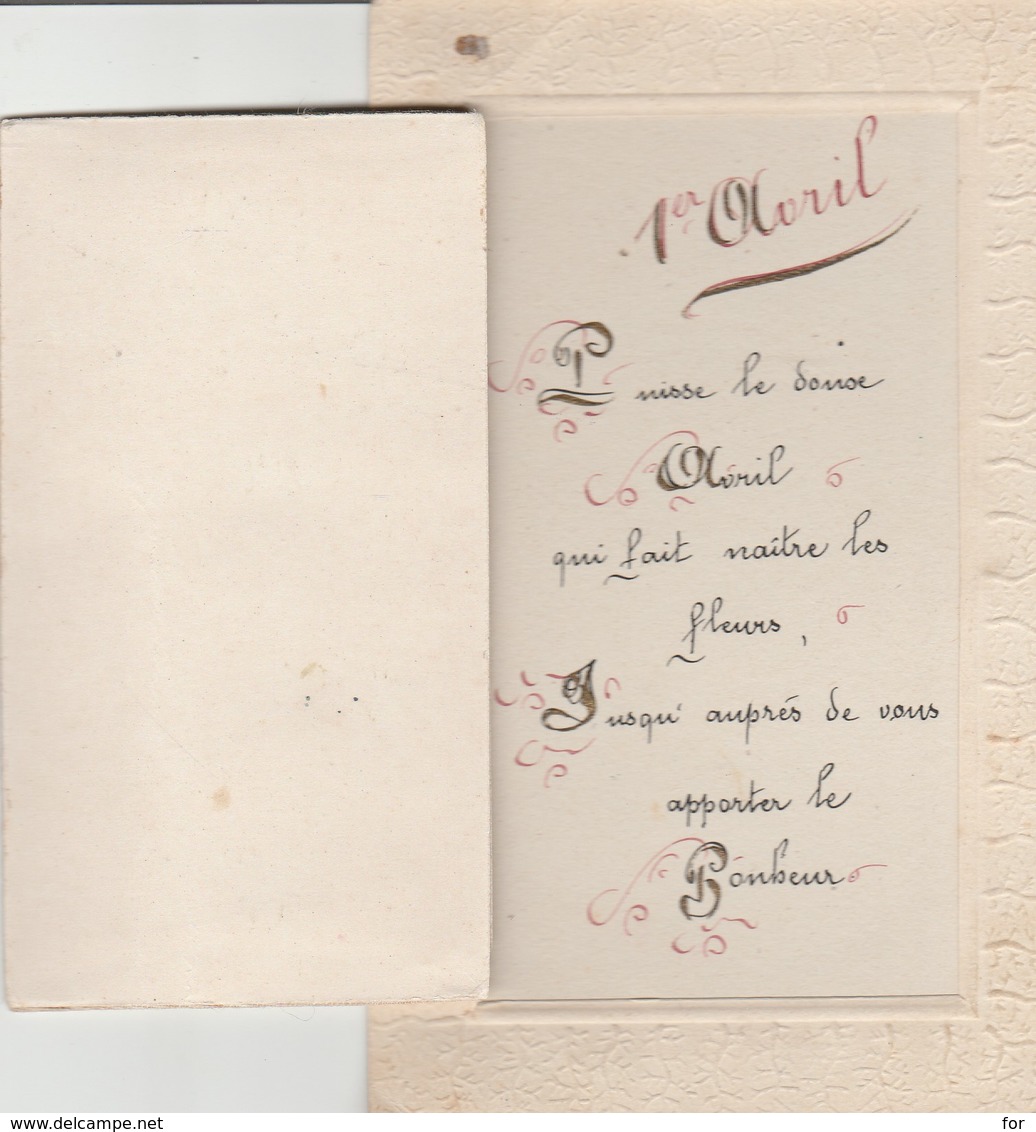 1er Avril
Puisse le douce
Avril
qui fait naître les
fleurs,
Jusqu' auprés de vous
apporter le
Bonheur
delcampe.net
for